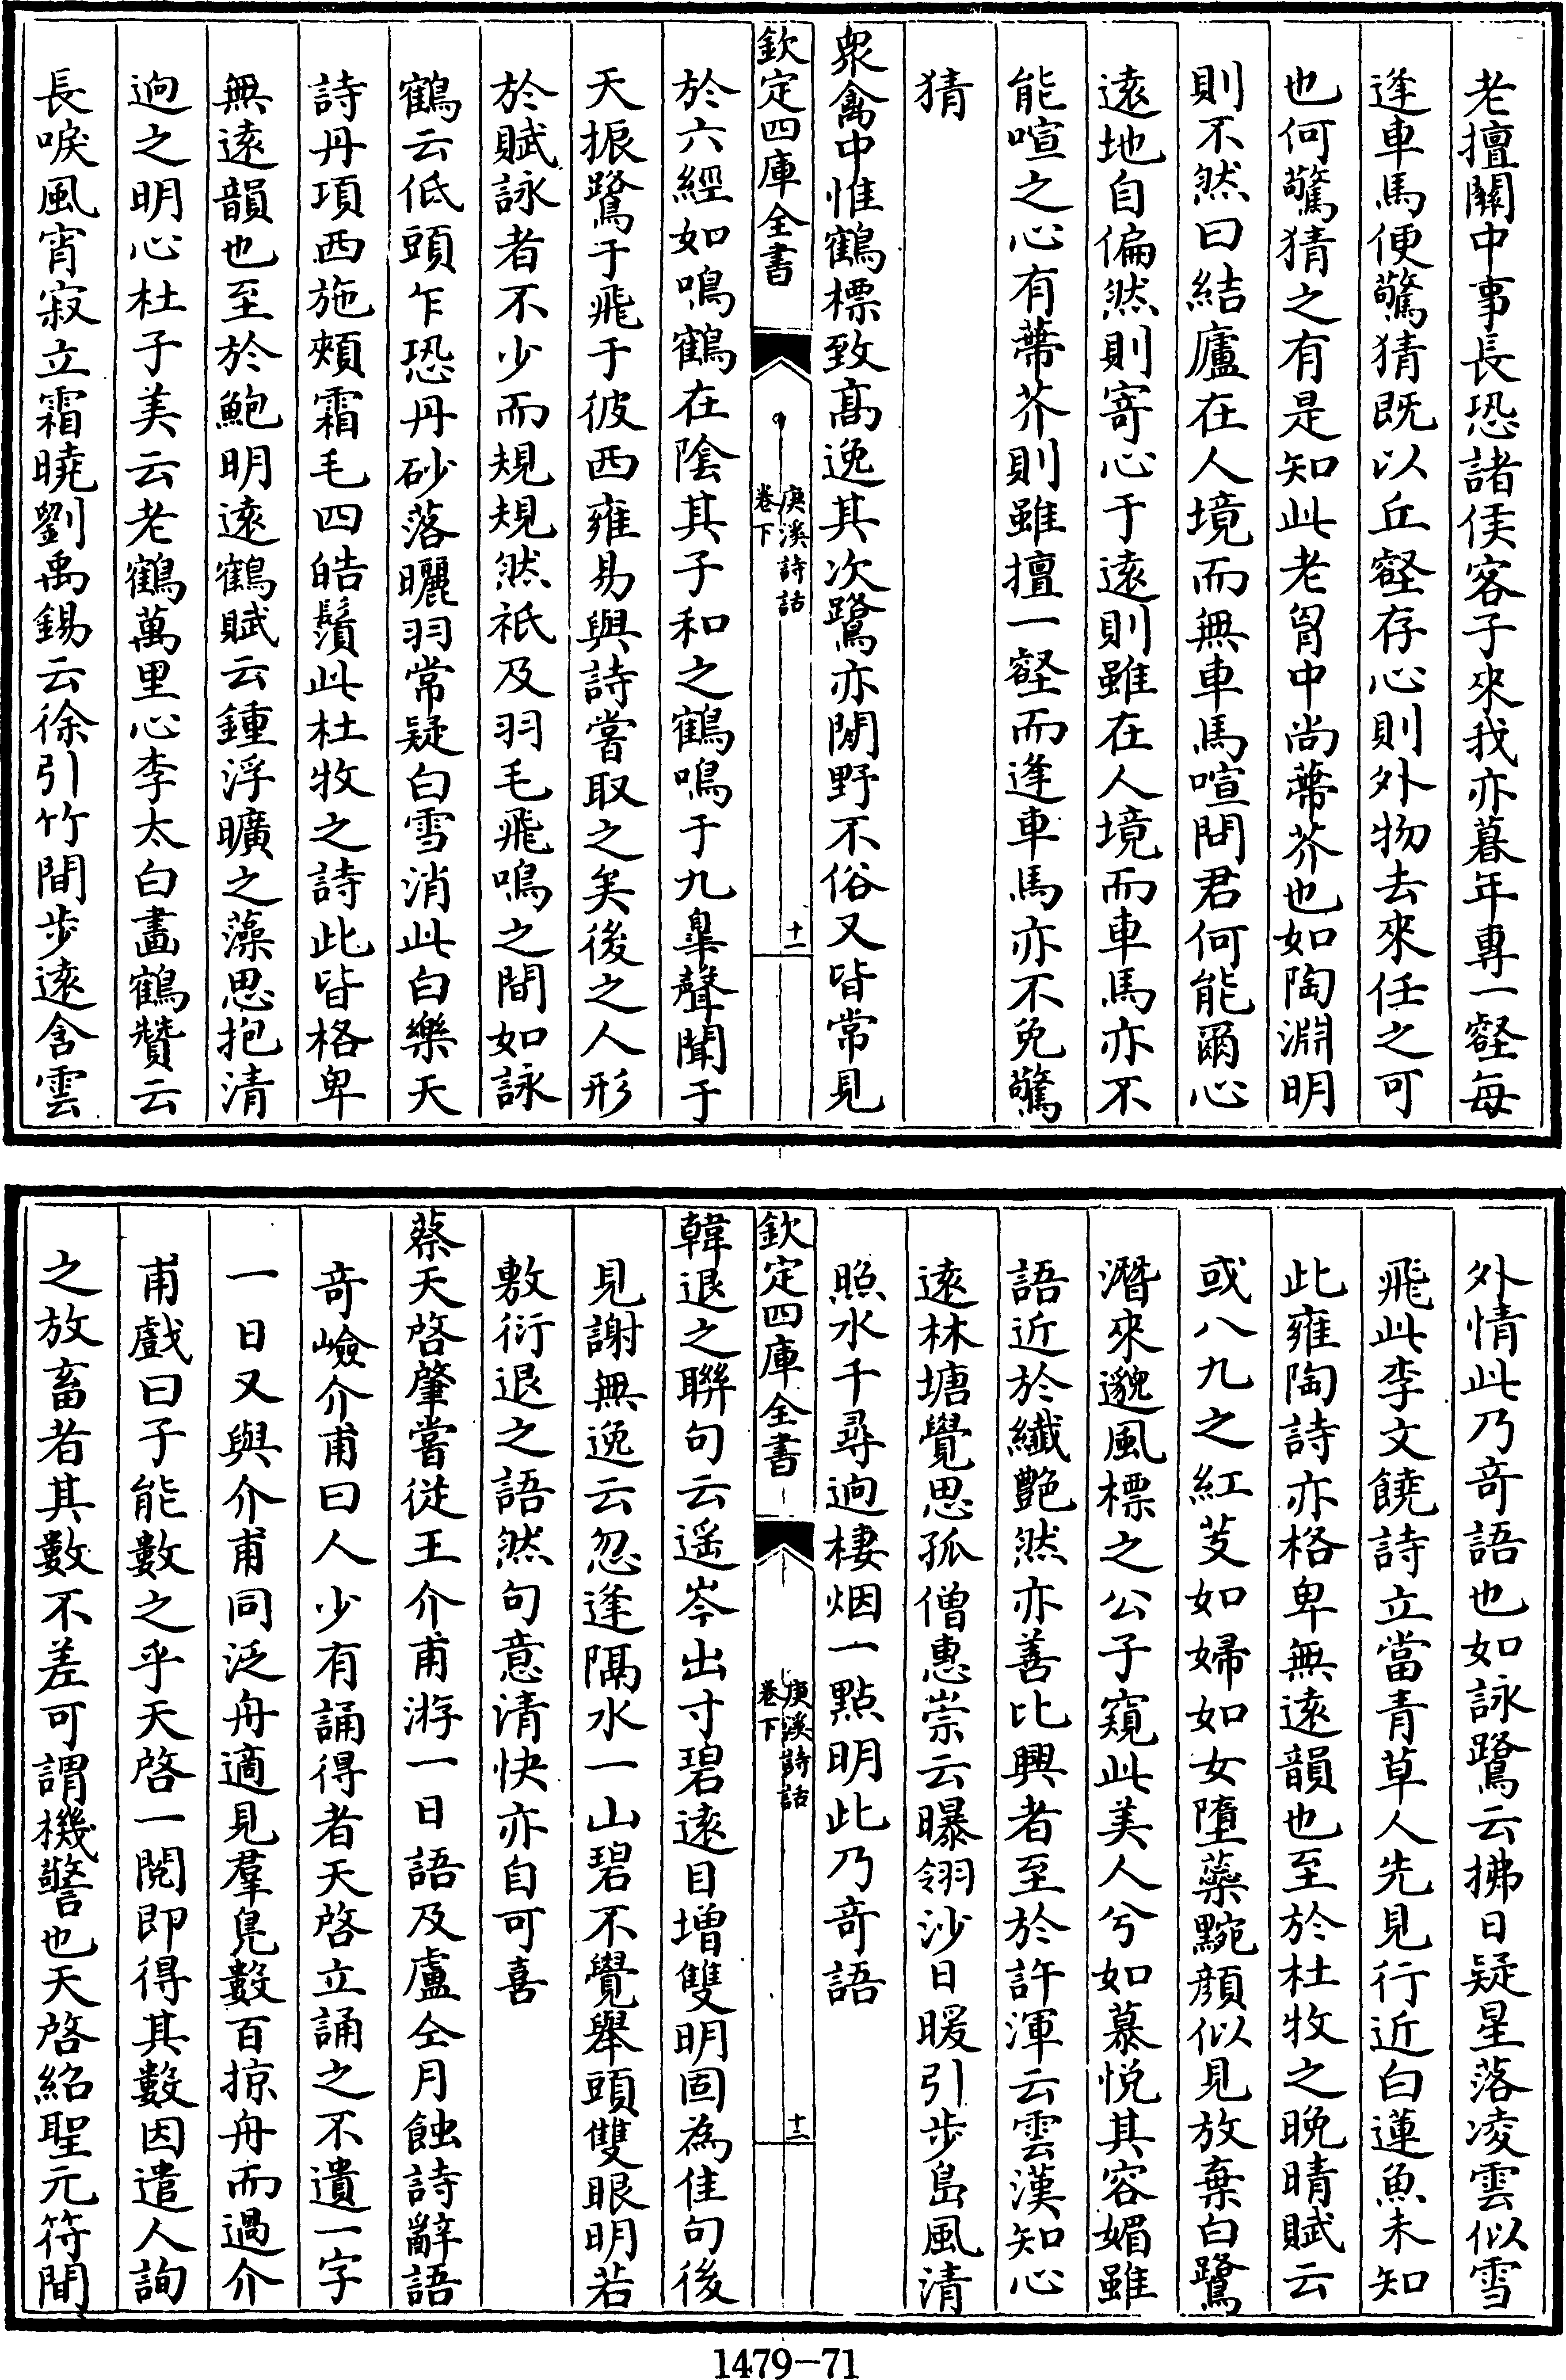 老擅關中事長恐諸侯客子來我亦暮年專一壑每
逢車馬便驚猜既以丘壑存心則外物去來任之可
也何驚猜之有是知此老胷中尚蔕芥也如陶淵明
則不然曰結廬在人境而無車馬喧問君何能爾心
遠地自偏然則寄心于遠則雖在人境而車馬亦不
能喧之心有蔕芥則雖擅一壑而逢車馬亦不免驚
猜
衆禽中惟鶴標致髙逸其次鷺亦閒野不俗又皆常見
欽定四庫全書
庚溪詩話
卷下
十一
於六經如鳴鶴在陰其子和之鶴鳴于九臯聲聞于
天振鷺于飛于彼西雍易與詩嘗取之矣後之人形
於賦詠者不少而規規然祗及羽毛飛鳴之間如詠
鶴云低頭乍恐丹砂落曬羽常疑白雪消此白樂天
詩丹項西施頰霜毛四皓鬚此杜牧之詩此皆格卑
無逺韻也至於鮑明逺鶴賦云鍾浮曠之藻思抱清
逈之明心杜子美云老鶴萬里心李太白畫鶴贊云
長唳風宵寂立霜曉劉禹錫云徐引竹間步逺含雲
外情此乃竒語也如詠鷺云拂日疑星落凌雲似雪
飛此李文饒詩立當青草人先見行近白蓮魚未知
此雍陶詩亦格卑無逺韻也至於杜牧之晩晴賦云
或八九之紅芰如婦如女墮蘂黦顔似見放棄白鷺
潛來邈風標之公子窺此美人兮如慕悅其容媚雖
語近於纎艷然亦善比興者至於許渾云雲漢知心
逺林塘覺思孤僧惠崇云曝翎沙日暖引步島風清
照水千尋逈棲烟一點明此乃竒語
欽定四庫全書
庚溪詩話
卷下
十二
韓退之聯句云遥岑出寸碧逺目增雙明固為佳句後
見謝無逸云忽逢隔水一山碧不覺舉頭雙眼明若
敷衍退之語然句意清快亦自可喜
蔡天啓肇嘗從王介甫游一日語及盧仝月蝕詩辭語
竒嶮介甫曰人少有誦得者天啓立誦之不遺一字
一日又與介甫同泛舟適見羣鳧數百掠舟而過介
甫戲曰子能數之乎天啓一閲即得其數因遣人詢
之放畜者其數不差可謂機警也天啓紹聖元符間
1479-71